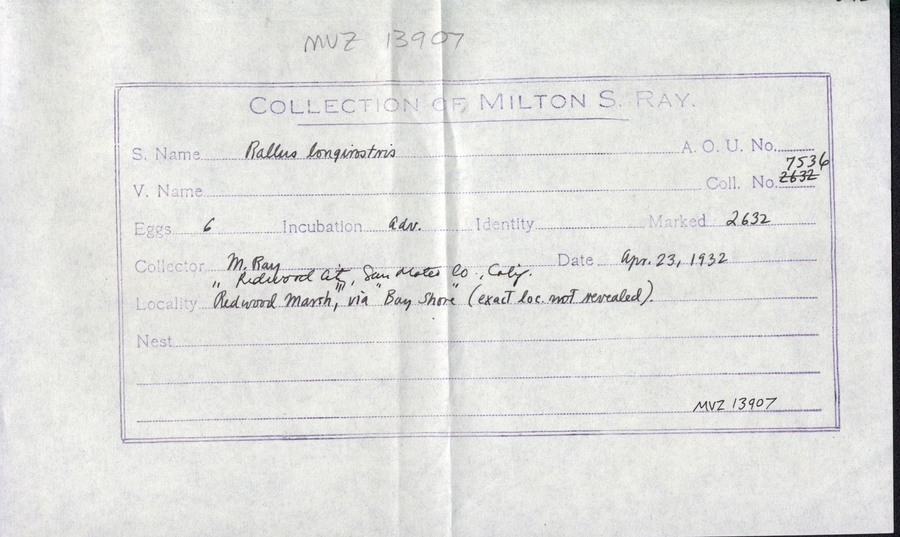 MVZ 13907
COLLECTION OF MILTON S. RAY.
S. Name Rallus longirostris A. O. U. No.
7536
V. Name Coll. No. 2632
Eggs 6 Incubation adv. Identity Marked 2632
Collector M. Ray Date Apr. 23, 1932
" Redwood Cit", San Mateo Co., Calif.
Locality Redwood Marsh, via "Bay Shore" (exact loc. not revealed).
Nest
MVZ 13907